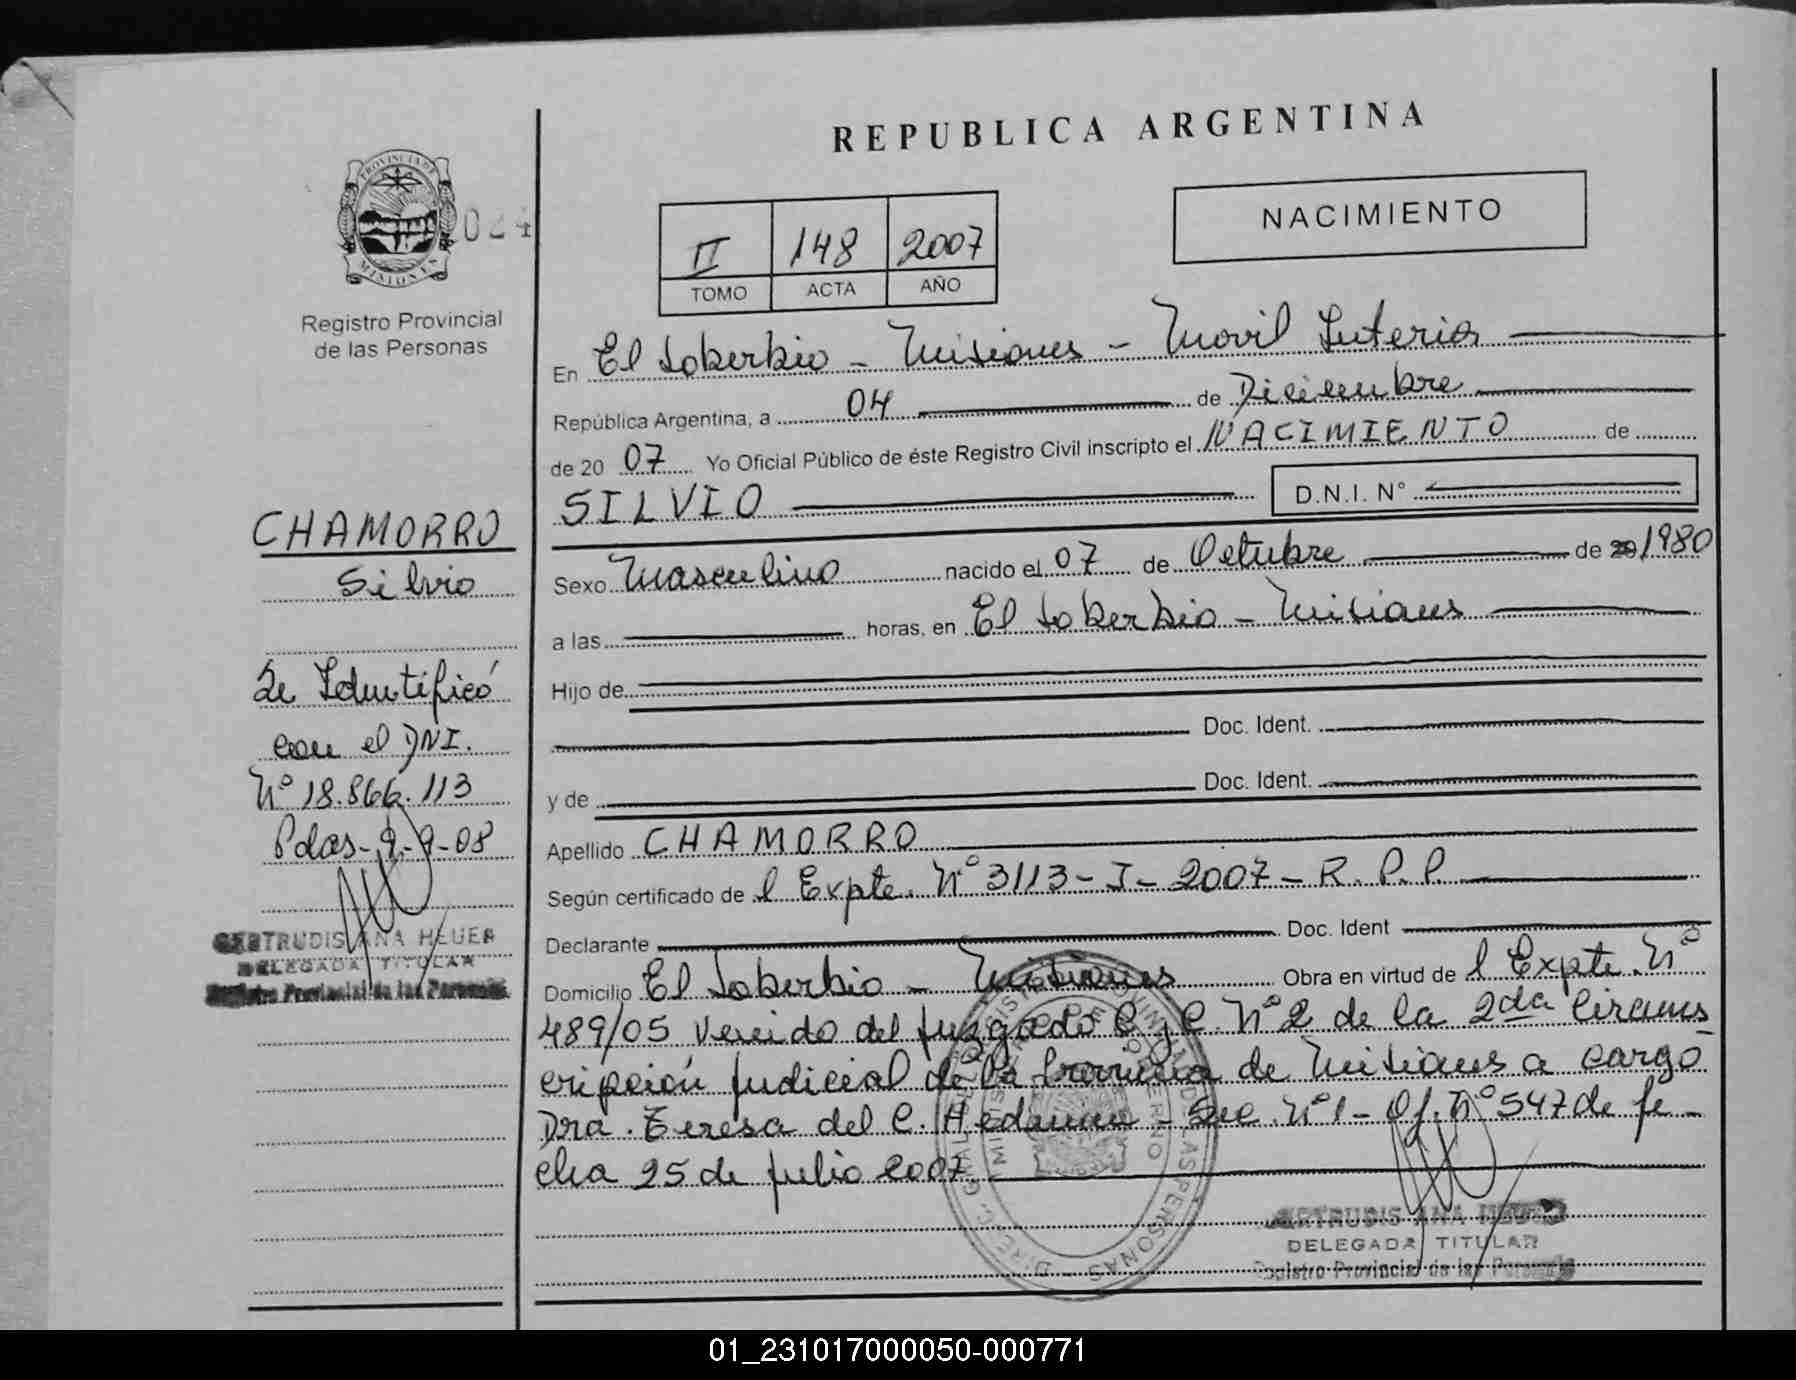 REPUBLICA ARGENTINA
PROVINCIA DE
MISIONES
024
Registro Provincial
de las Personas
II 148 2007
TOMO ACTA AÑO
NACIMIENTO
En El Soberbio - Misiones - Movil Interior
República Argentina, a 04 de Diciembre
de 20 07 Yo Oficial Público de éste Registro Civil inscripto el NACIMIENTO de
SILVIO D.N.I. N°
Sexo Masculino nacido el 07 de Octubre de 20 1980
a las horas, en El Soberbio - Misiones
Hijo de
Doc. Ident.
y de Doc. Ident.
Apellido CHAMORRO
Según certificado de l Expte. N° 3113 - I - 2007 - R. P. P.
Declarante Doc. Ident
Domicilio El Soberbio - Misiones Obra en virtud de l Expte. N°
489/05 Venido del Juzgado C. y C. N° 2 de la 2da Circuns
cripción Judicial de la Provincia de Misiones a cargo
Dra. Teresa del C. Hedman - Sec. N° 1 - Of. N° 547 de fe -
cha 25 de Julio 2007
CHAMORRO
Silvio
Se Identificó
con el DNI.
N° 18.866.113
Pdas - 9 - 9 - 08
GERTRUDIS ANA HEUER
DELEGADA TITULAR
Registro Provincial de las Personas
GERTRUDIS ANA HEUER
DELEGADA TITULAR
Registro Provincial de las Personas
01_231017000050-000771